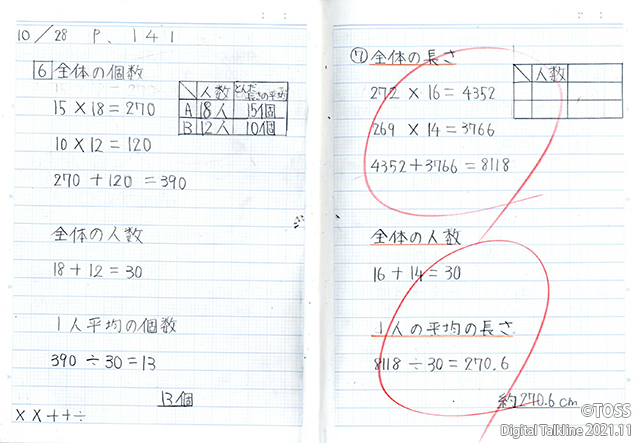 10/28 P.141
6 全体の個数
人数 とんだ長さの平均
A 18人 15個
B 12人 10個
15×18=270
10×12=120
270+120=390
全体の人数
18+12=30
1人平均の個数
390÷30=13
13個
××++÷
⑦ 全体の長さ
人数
272×16=4352
269×14=3766
4352+3766=8118
全体の人数
16+14=30
1人の平均の長さ
8118÷30=270.6
約270.6cm
©TOSS
Digital Talkline 2021.11